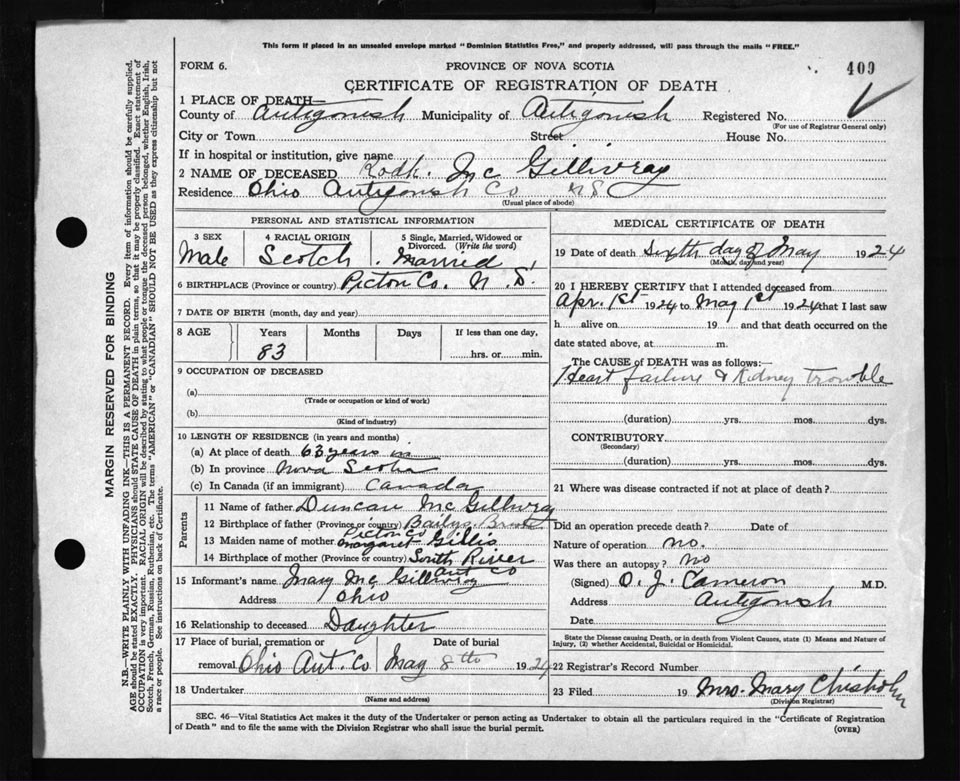 This form if placed in an unsealed envelope marked "Dominion Statistics Free," and properly addressed, will pass through the mails "FREE."
FORM 6.
PROVINCE OF NOVA SCOTIA
409
CERTIFICATE OF REGISTRATION OF DEATH
1 PLACE OF DEATH—
County of Antigonish Municipality of Antigonish Registered No.
(For use of Registrar General only)
City or Town Street House No.
If in hospital or institution, give name
2 NAME OF DECEASED Rodk. Mc Gillivray
Residence Ohio Antigonish Co NS
(Usual place of abode)
PERSONAL AND STATISTICAL INFORMATION
3 SEX 4 RACIAL ORIGIN 5 Single, Married, Widowed or Divorced. (Write the word)
Male Scotch Married
6 BIRTHPLACE (Province or country) Picton Co. N.S.
7 DATE OF BIRTH (month, day and year)
8 AGE Years Months Days If less than one day,
83 hrs. or min.
9 OCCUPATION OF DECEASED
(a)
(Trade or occupation or kind of work)
(b)
(Kind of industry)
10 LENGTH OF RESIDENCE (in years and months)
(a) At place of death 63 years in
(b) In province Nova Scotia
(c) In Canada (if an immigrant) Canada
Parents
11 Name of father Duncan McGillivray
12 Birthplace of father (Province or country) Bailys Brook
Picton Co
13 Maiden name of mother Margaret Gillis
14 Birthplace of mother (Province or country) South River
Ant Co
15 Informant's name Mary McGillivray
Address Ohio
16 Relationship to deceased Daughter
17 Place of burial, cremation or removal Date of burial
Ohio Ant. Co May 8th 1924
18 Undertaker
(Name and address)
MEDICAL CERTIFICATE OF DEATH
19 Date of death Sixth day of May 1924
(Month, day and year)
20 I HEREBY CERTIFY that I attended deceased from
Apr. 1st 1924 to May 1st 1924 that I last saw
h alive on 19 and that death occurred on the
date stated above, at m.
The CAUSE OF DEATH was as follows:
Heart failure & Kidney Trowble
(duration) yrs. mos. dys.
CONTRIBUTORY
(Secondary)
(duration) yrs. mos. dys.
21 Where was disease contracted if not at place of death?
Did an operation precede death? Date of
Nature of operation no.
Was there an autopsy? no
(Signed) O. J. Cameron M.D.
Address Antigonish
Date
State the Disease causing Death, or in death from Violent Causes, state (1) Means and Nature of Injury, (2) whether Accidental, Suicidal or Homicidal.
22 Registrar's Record Number
23 Filed 19 Mrs. Mary Chisholm
(Division Registrar)
SEC. 46—Vital Statistics Act makes it the duty of the Undertaker or person acting as Undertaker to obtain all the particulars required in the "Certificate of Registration
of Death" and to file the same with the Division Registrar who shall issue the burial permit.
(OVER)
MARGIN RESERVED FOR BINDING
N.B.—WRITE PLAINLY WITH UNFADING INK—THIS IS A PERMANENT RECORD. Every item of information should be carefully supplied.
AGE should be stated EXACTLY. PHYSICIANS should STATE CAUSE OF DEATH in plain terms, so that it may be properly classified. Exact statement of
OCCUPATION is very important. RACIAL ORIGIN will be described by stating to what people or tongue the deceased person belonged, whether English, Irish,
Scotch, French, German, Russian, Ruthenian, etc. The terms "AMERICAN" or "CANADIAN" SHOULD NOT BE USED as they express citizenship but not
a race or people. See instructions on back of Certificate.